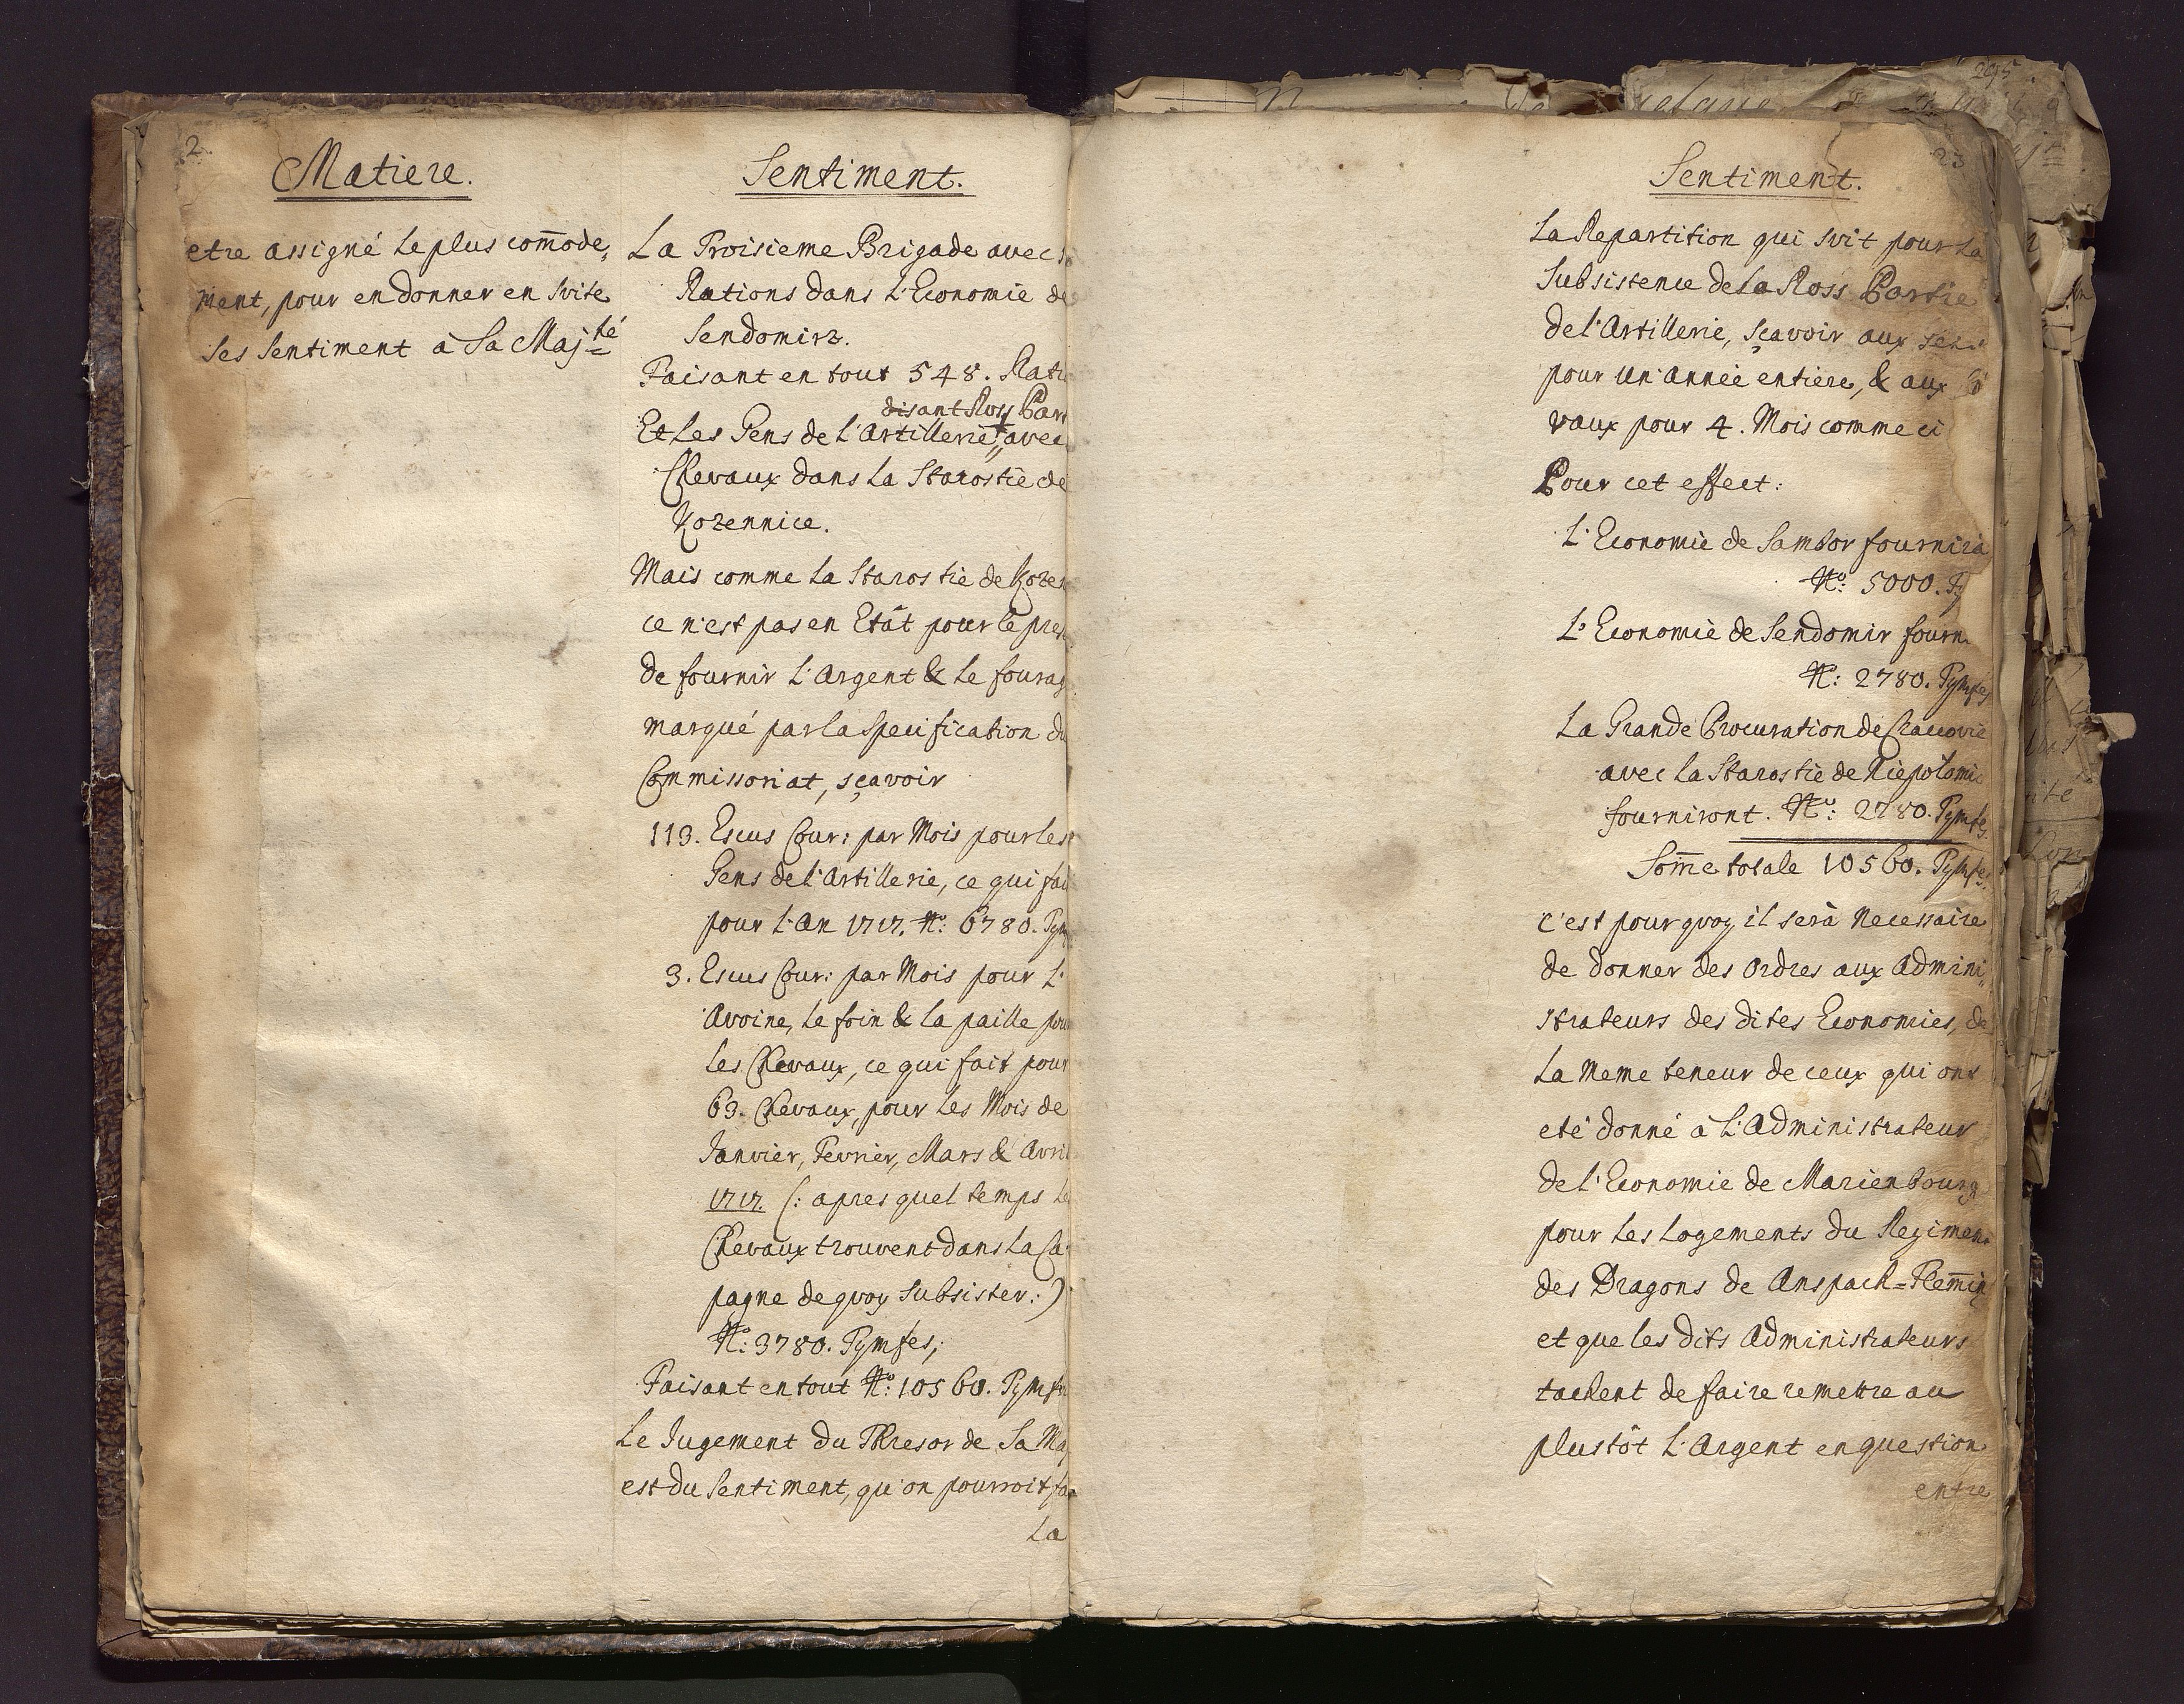 2
Matiere.
etre assigné le plus com̄ode,
ment, pour en donner en suite
ses sentiment à Sa Maj:té
Sentiment.
La Troisieme Brigade avec
Rations dans l'Economie de
Sendomirz.
Faisant en tout 548.
disant Ross
Et les Gens de l'Artillerie, avec
Chevaux dans la Starostie de
Kozennice.
Mais comme la Starostie de
ce n'est pas en Etât pour le
de fournir l'Argent & le
marqué par la Specification du
Commissoriat, sçavoir
113. Escus Cour: par Mois pour les
Gens de l'Artillerie, ce qui
pour l'An 1717. No: 6780.
3. Escus Cour: par Mois pour l'
Avoine, le foin & la paille
les Chevaux, ce qui fait pour
63. Chevaux, pour les Mois de
Janvier, Fevrier, Mars & Avril
1717. (: apres quel temps
Chevaux trouvent dans la Ca
pagne de quoy subsister. :)
No: 3780. Tymfes;
Faisant en tout No: 10560.
Le Jugement du Thresor de Sa
est du sentiment, qu'on pourroit
La
23
Sentiment.
La Repartition qui suit pour la
Subsistence de la Ross Partie
de l'Artillerie, sçavoir aux
pour un'année entiere, & aux
vaux pour 4. Mois comme ci
Pour cet effect:
L'Economie de Sambor fournira
No: 5000.
L'Economie de Sendomir
No: 2780. Tymfes
La Grande Procuration de Cracovie
avec la Starostie de Niepolomic
fourniront. No: 2780. Tymfes.
Som̄e totale 10560. Tymfes.
c'est pourquoy il serà necessaire
de donner des ordres aux Admini,
strateurs des dites Economies, de
la meme teneur de ceux qui ont
eté donné à l'Administrateur
de l'Economie de Marienbourg
pour les logements du Regiment
des Dragons de Anspach=
et que les dits Administrateurs
tachent de faire remettre au
plustôt l'Argent en question
entre
295